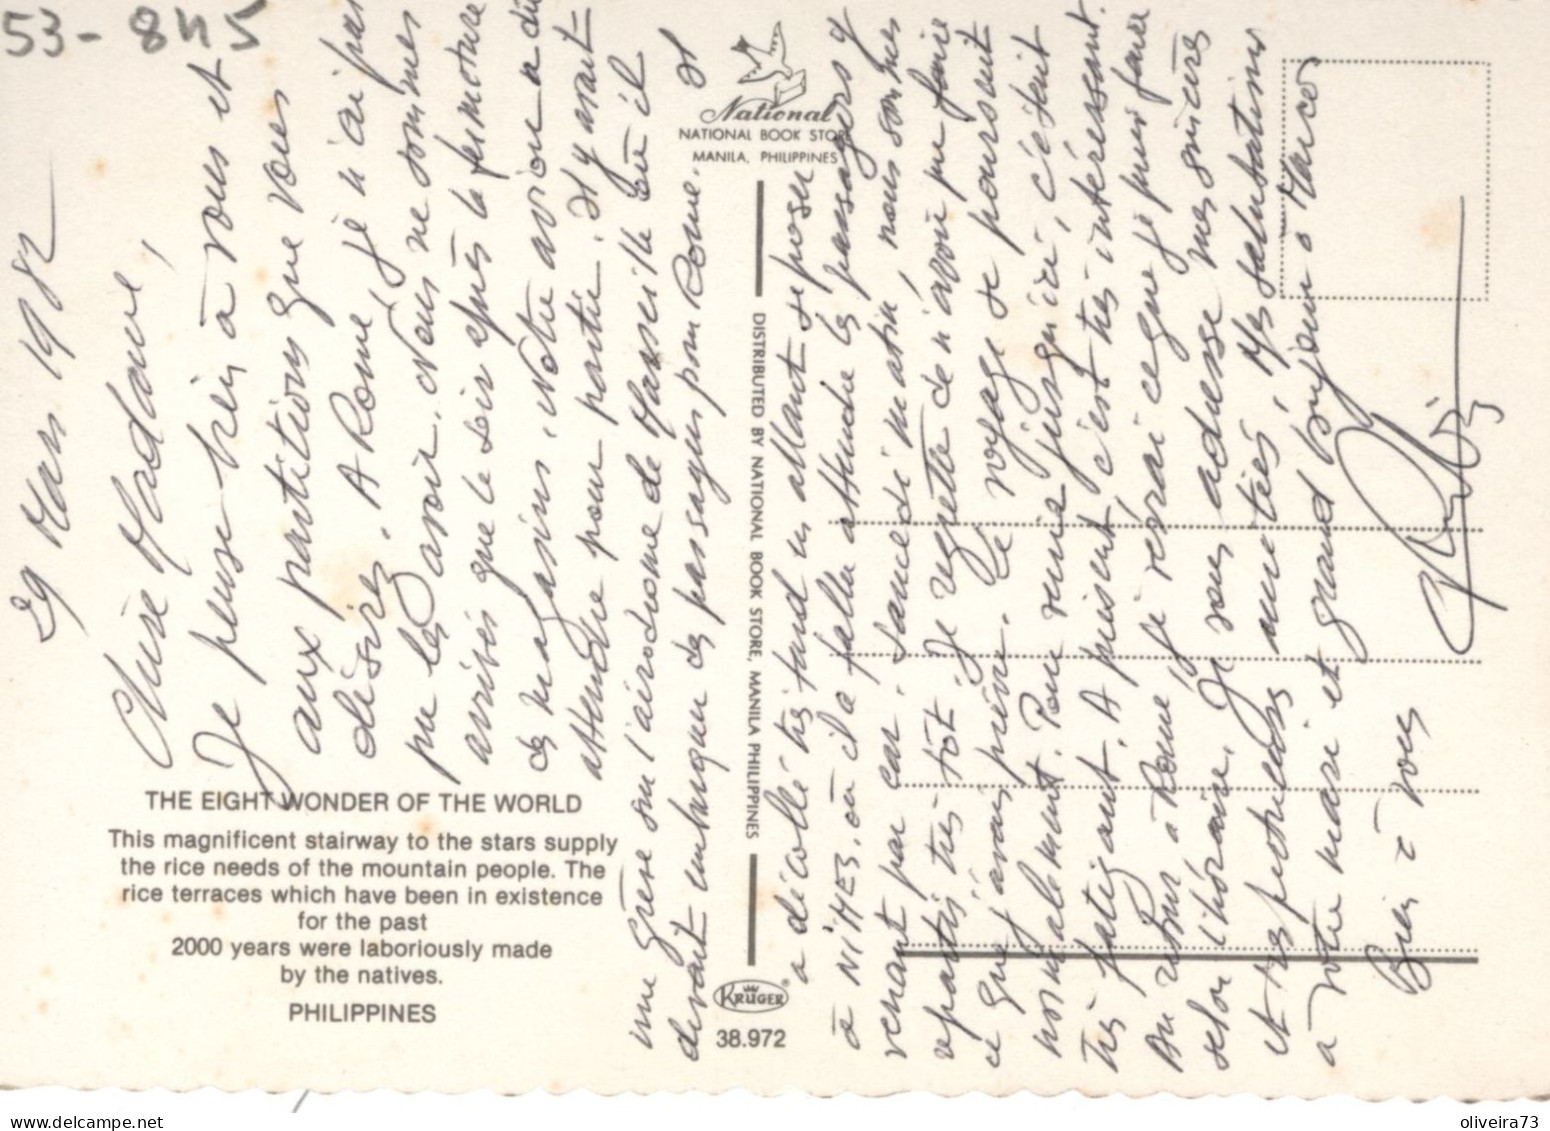 53-845
29 Mars 1982
Chère Madame,
Je pense bien à vous et
aux partitions que vous
désirez. A Rome je n'ai pas
pu les avoir. Nous ne sommes
arrivés que le soir après la fermeture
des magasins. Notre avion a dû
attendre pour partir. Il y avait
une grève sur l'airodrome de Marseille où il
devait embarquer des passagers pour Rome. Il
a décollé très tard en allant se poser
à NîMES, où il a fallu attendre les passagers y
venant par car. Samedi matin, nous sommes
repartis très tôt. Je regrette de n'avoir pu faire
ce que j'avais prévu. Le voyage se poursuit
normalement. Pour venir jusqu'ici, c'était
très fatigant. A présent c'est très intéressant.
Au retour à Rome, je verrai ce que je puis faire
selon l'horaire. Je vous adresse mes sincères
et très amitiés, mes salutations
à votre mari et grand bonjour à Marco
Bien à vous
THE EIGHT WONDER OF THE WORLD
This magnificent stairway to the stars supply
the rice needs of the mountain people. The
rice terraces which have been in existence
for the past
2000 years were laboriously made
by the natives.
PHILIPPINES
National
NATIONAL BOOK STORE
MANILA, PHILIPPINES
DISTRIBUTED BY NATIONAL BOOK STORE, MANILA PHILIPPINES
KRÜGER®
38.972
delcampe.net
oliveira73